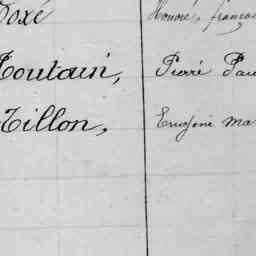 Honoré, françoi
Toutain, Pierré Pau
Tillon, Eugène Ma